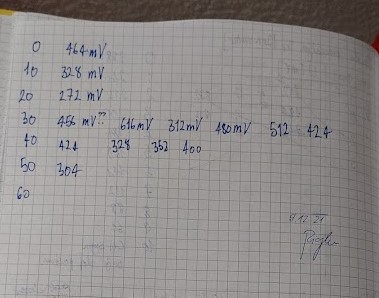 0 464 mV
10 328 mV
20 272 mV
30 456 mV?? 616mV 312mV 480mV 512 424
40 424 328 352 400
50 304
60